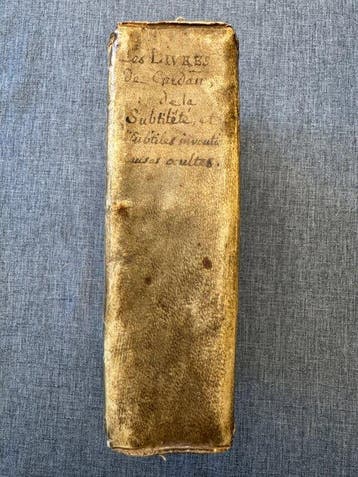 Les LIVRES
De Cardan,
de la
Subtilité, et
Subtiles inventi
ocultes.